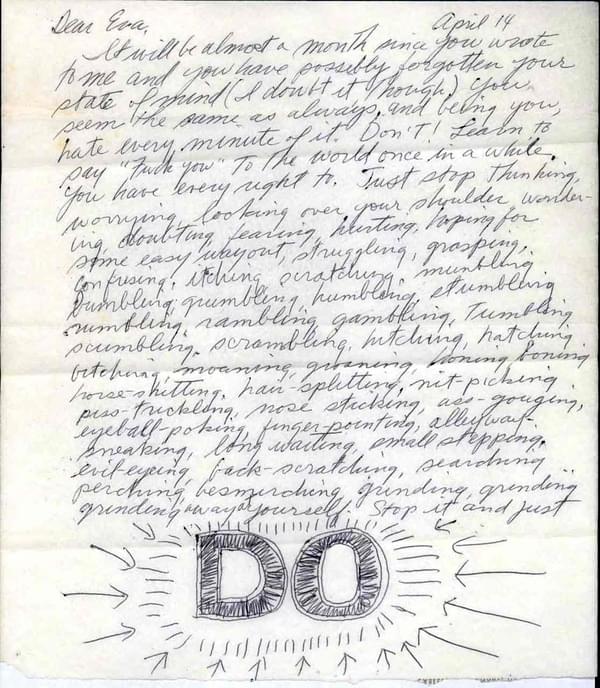 Dear Eva, April 14
It will be almost a month since you wrote
to me and you have possibly forgotten your
state of mind (I doubt it though). You
seem the same as always, and being you,
hate every minute of it. Don't! Learn to
say "Fuck You" to the world once in a while.
You have every right to. Just stop thinking,
worrying, looking over your shoulder wonder-
ing, doubting, fearing, hurting, hoping for
some easy way out, struggling, grasping,
confusing, itching, scratching, mumbling,
bumbling, grumbling, humbling, stumbling,
numbling, rambling, gambling, tumbling,
scumbling, scrambling, hitching, hatching,
bitching, moaning, groaning, honing, boning,
horse-shitting, hair-splitting, nit-picking,
piss-trickling, nose sticking, ass-gouging,
eyeball-poking, finger-pointing, alleyway-
sneaking, long waiting, small stepping,
evil-eyeing, back-scratching, searching,
perching, besmirching, grinding, grinding,
grinding away at yourself. Stop it and just
DO